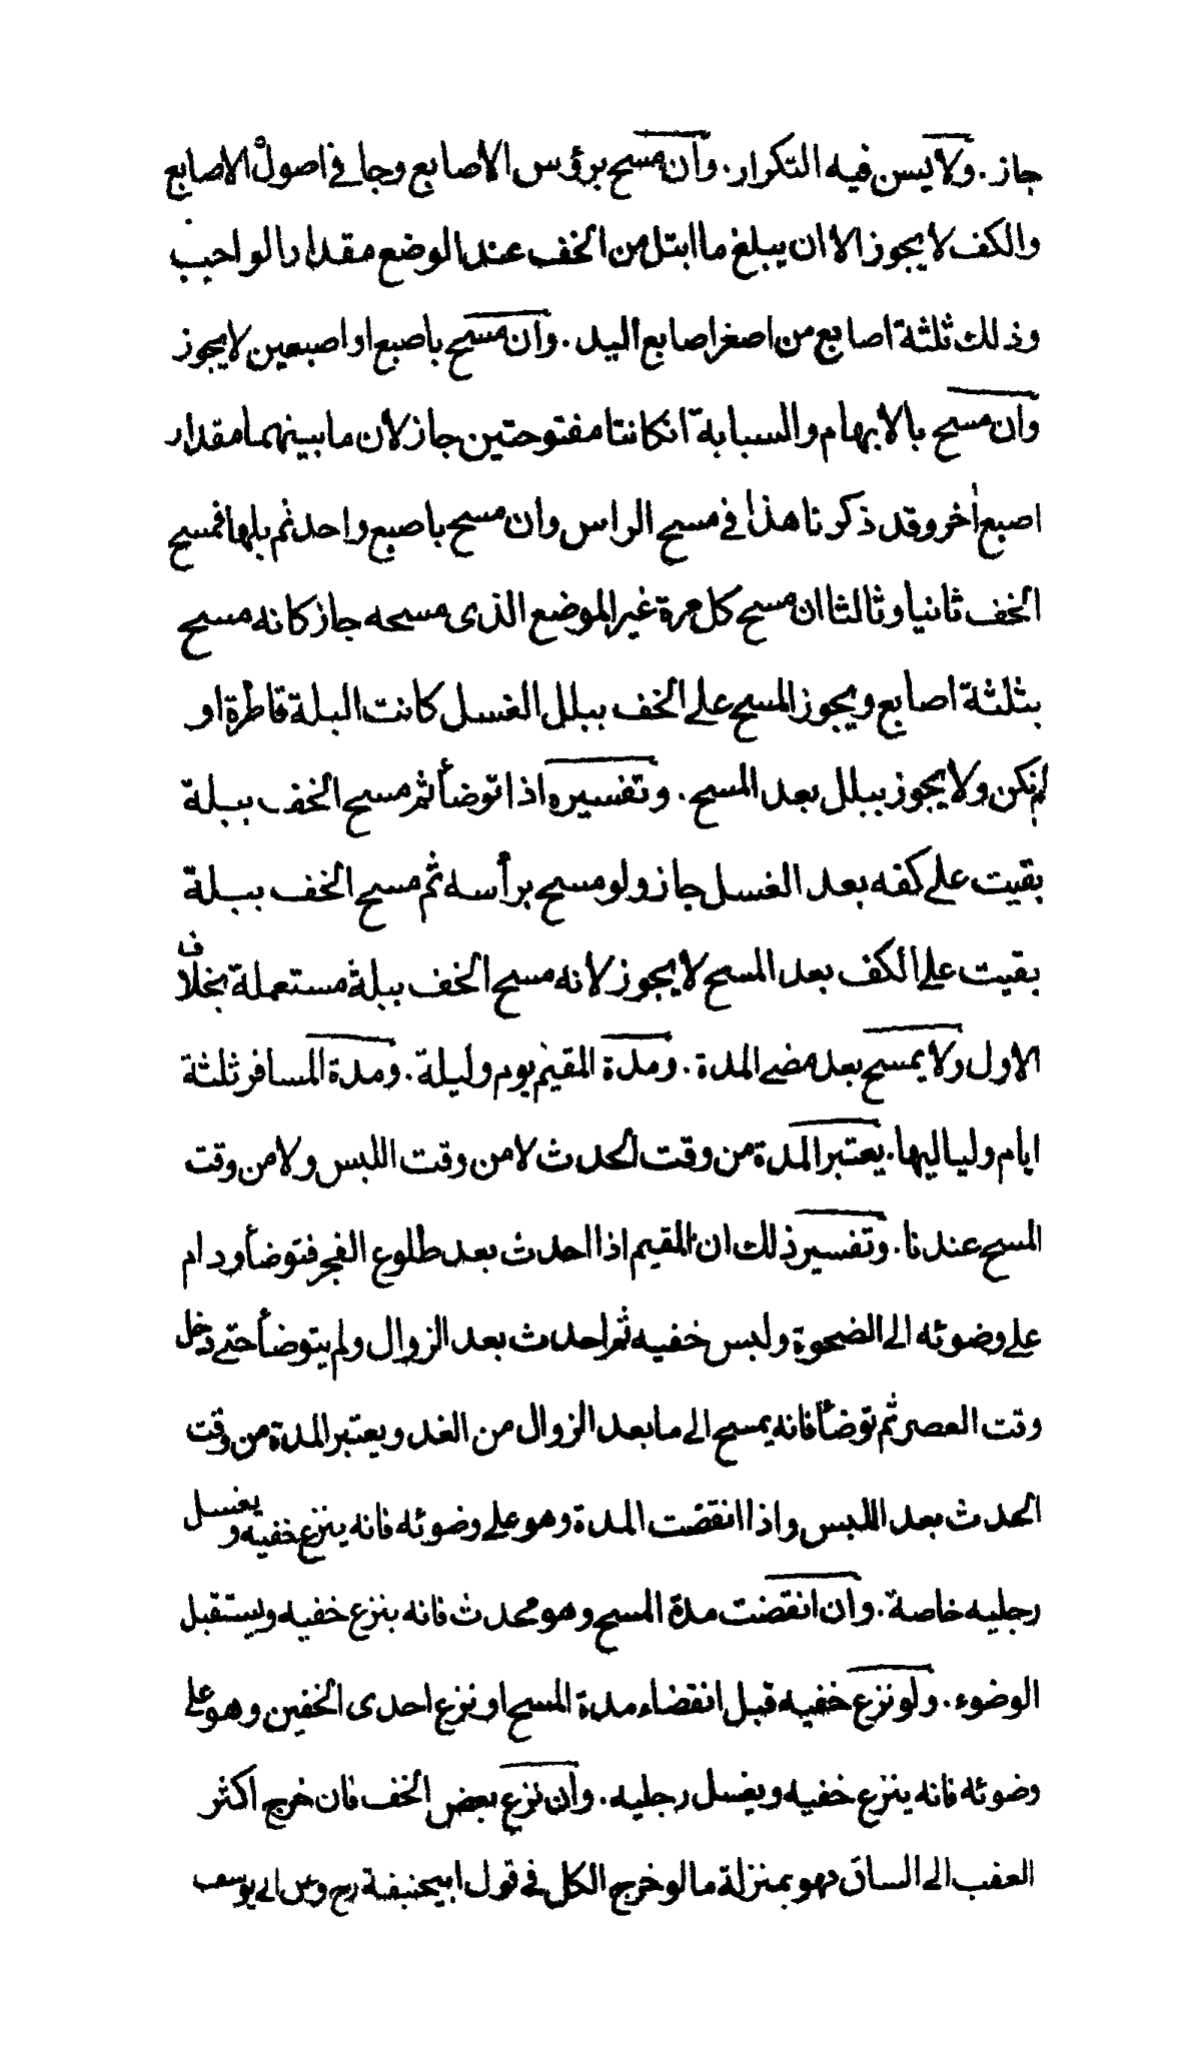 جاز. ولا يسن فيه التكرار. وان مسح برؤس الاصابع وجافى اصول الاصابع
والكف لا يجوز الا ان يبلغ ما ابتل من الخف عند الوضع مقدار الواجب
وذلك ثلثة اصابع من اصغر اصابع اليد. وان مسح باصبع او اصبعين لا يجوز
وان مسح بالابهام والسبابة ان كانتا مفتوحتين جاز لان ما بينهما مقدار
اصبع اخر وقد ذكرنا هذا في مسح الراس وان مسح باصبع واحد ثم بلها فمسح
الخف ثانيا وثالثا ان مسح كل مرة غير الموضع الذى مسحه جاز كانه مسح
بثلثة اصابع ويجوز المسح على الخف ببلل الغسل كانت البلة قاطرة او
لم تكن ولا يجوز ببلل بعد المسح. وتفسيره اذا توضأ ثم مسح الخف ببلة
بقيت على كفه بعد الغسل جاز ولو مسح برأسه ثم مسح الخف ببلة
بقيت على الكف بعد المسح لا يجوز لانه مسح الخف ببلة مستعملة بخلاف
الاول ولا يمسح بعد مضى المدة. ومدة المقيم يوم وليلة. ومدة المسافر ثلثة
ايام ولياليها. يعتبر المدة من وقت الحدث لا من وقت اللبس ولا من وقت
المسح عندنا. وتفسير ذلك ان المقيم اذا احدث بعد طلوع الفجر فتوضأ ودام
على وضوئه الى الضحوة ولبس خفيه ثم احدث بعد الزوال ولم يتوضأ حتى دخل
وقت العصر ثم توضأ فانه يمسح الى ما بعد الزوال من الغد ويعتبر المدة من وقت
الحدث بعد اللبس واذا انقضت المدة وهو على وضوئه فانه ينزع خفيه ويغسل
رجليه خاصة. وان انقضت مدة المسح وهو محدث فانه ينزع خفيه ويستقبل
الوضوء. ولو نزع خفيه قبل انقضاء مدة المسح او نزع احدى الخفين وهو على
وضوئه فانه ينزع خفيه ويغسل رجليه. وان نزع بعض الخف فان خرج اكثر
العقب الى الساق فهو بمنزلة ما لو خرج الكل في قول ابيحنيفة رح وعن ابى يوسف